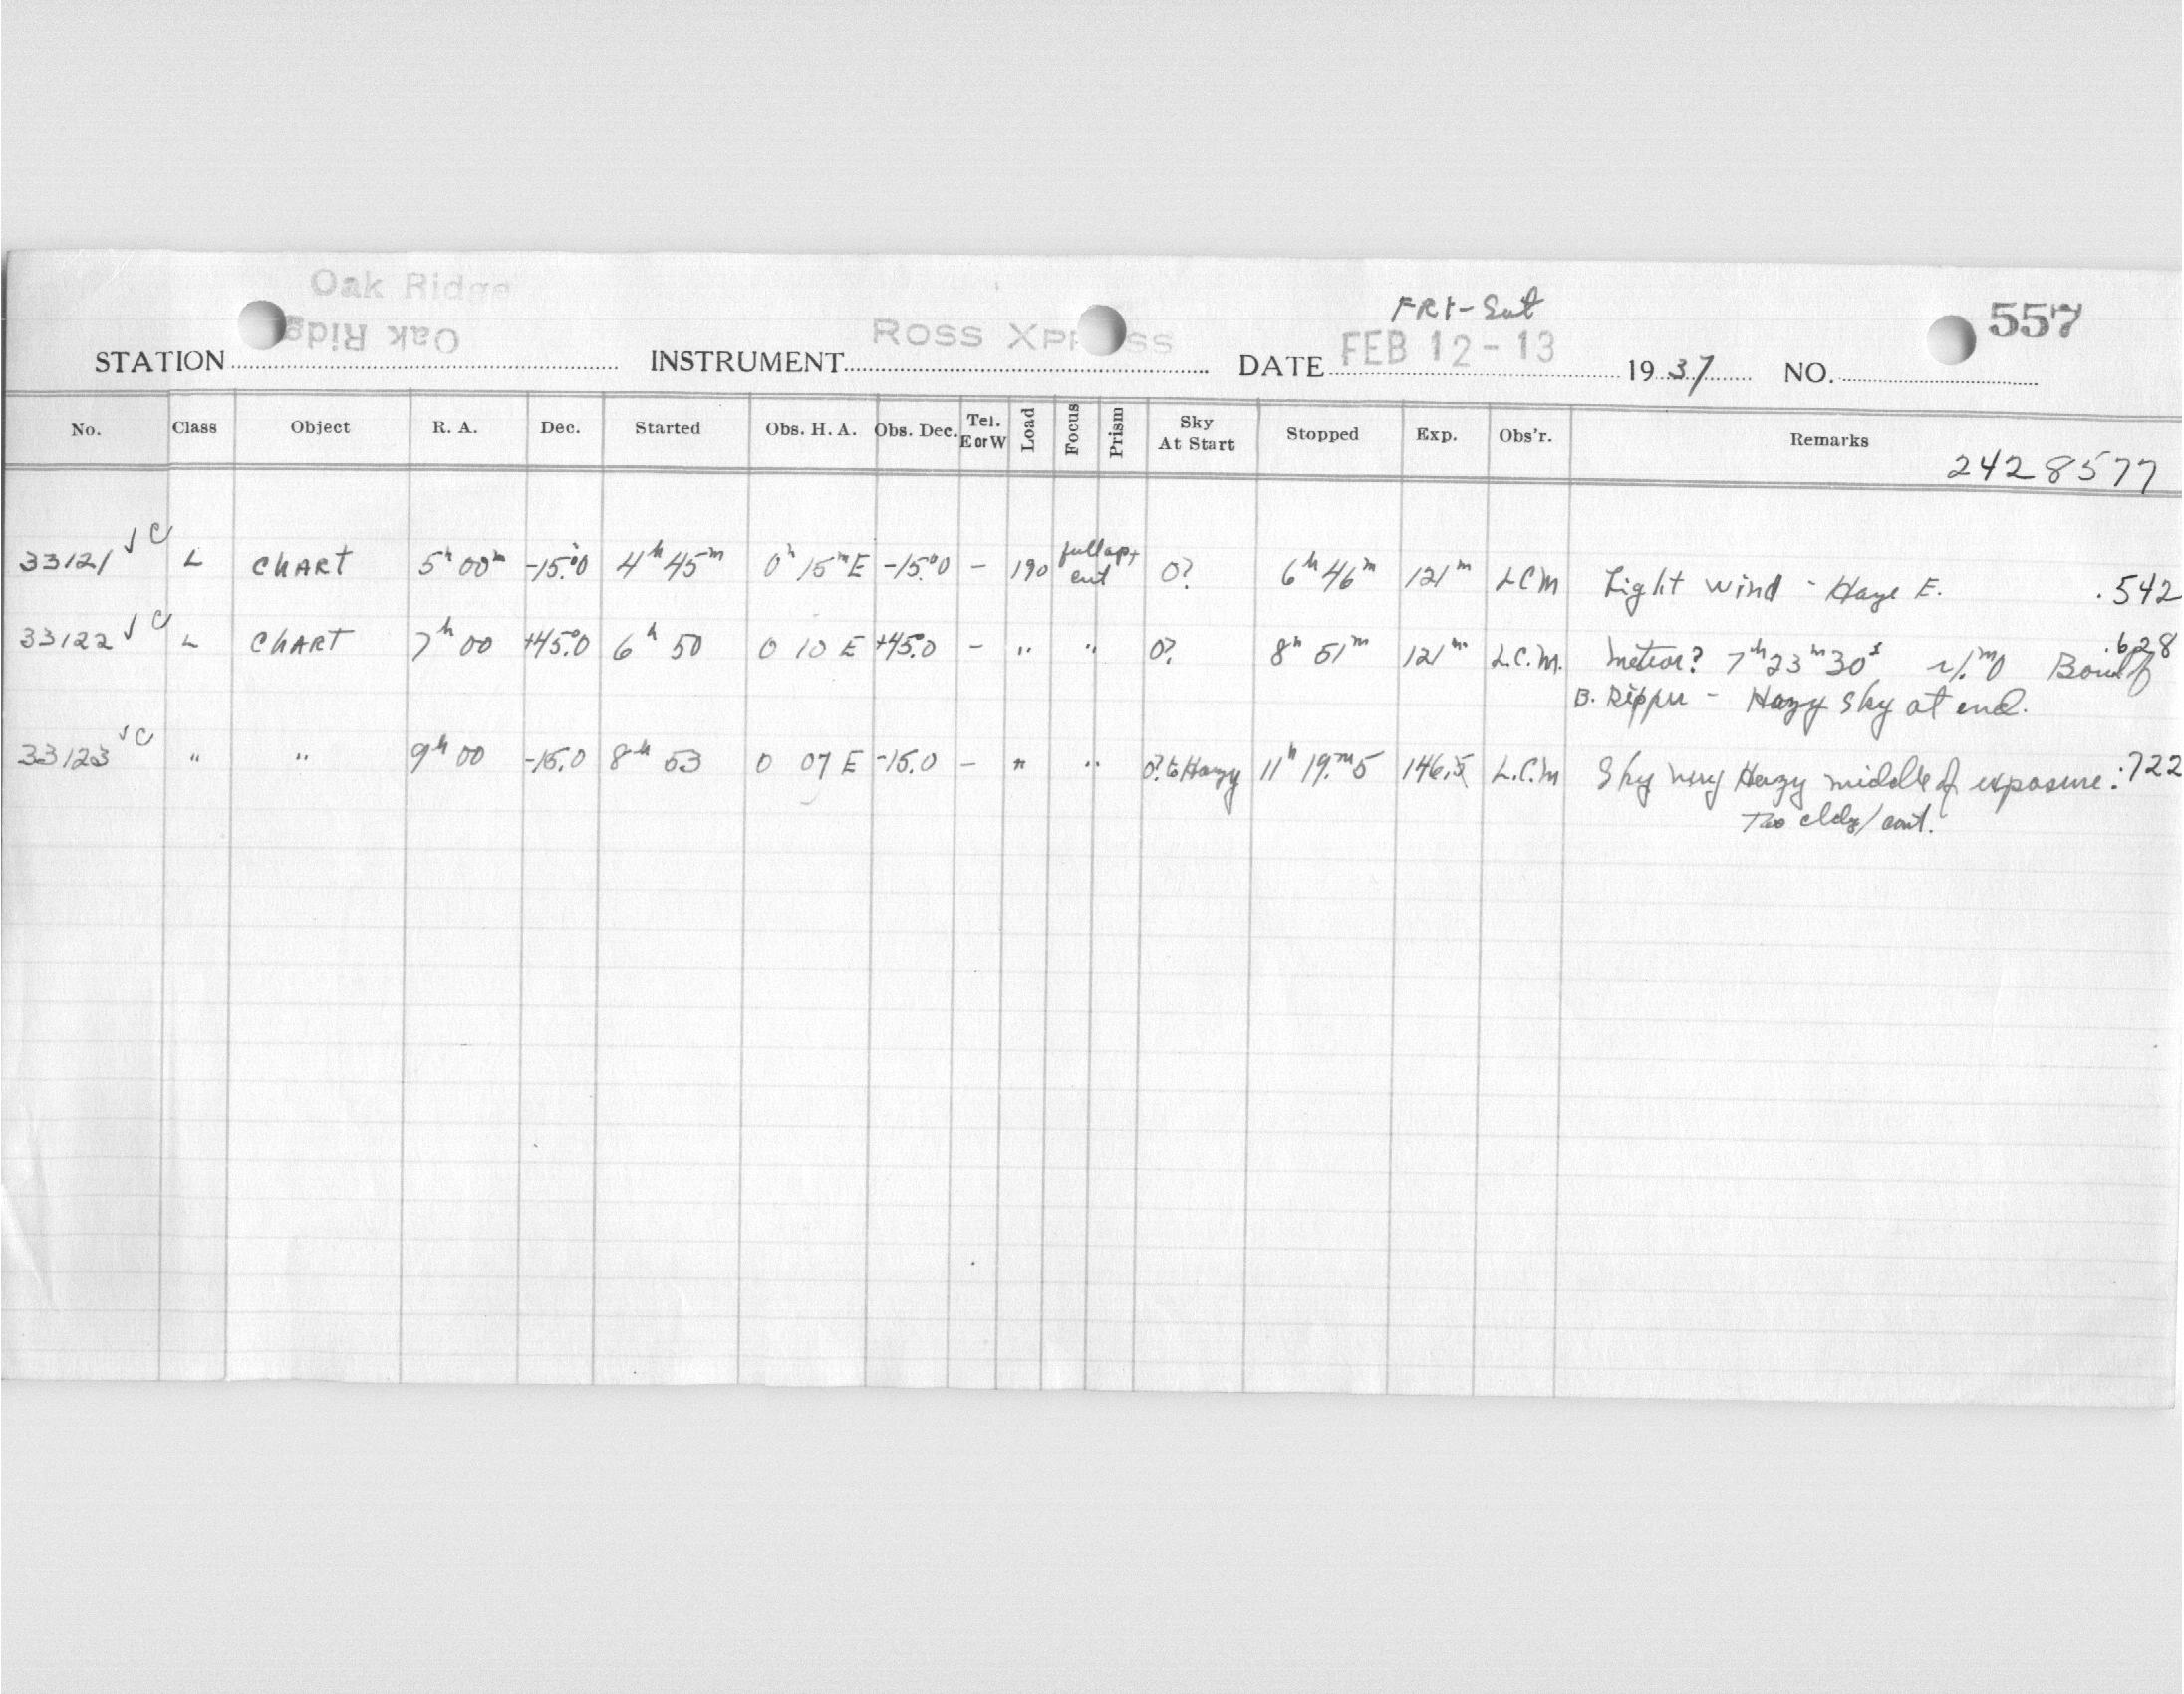 Oak Ridge
Oak Ridg
FRI-Sat
557
STATION INSTRUMENT ROSS XPR SS DATE FEB 12-13 1937 NO.
No. Class Object R. A. Dec. Started Obs. H. A. Obs. Dec. Tel. E or W Load Focus Prism Sky At Start Stopped Exp. Obs'r. Remarks
2428577
33121 √ C L CHART 5h 00m -15.°0 4h 45m 0h 15m E -15.°0 - 190 full ap, cut 0? 6h 46m 121m LCM Light Wind - Haze E. .542
33122 √ C L CHART 7h 00 +45.°0 6h 50 0 10 E +45.°0 - " " 0? 8h 51m 121m L.C.M. Meteor? 7h 23m 30s .628
B. Hazy Sky at end.
33123 √ C " " 9h 00 -15.0 8h 53 0 07 E -15.0 - " " 0? to Hazy 11h 19.m5 146.5 L.C.M Sky very Hazy middle of exposure. .722
Too cldy/cont.